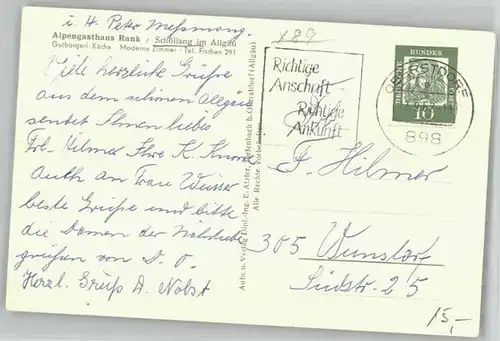 i. H. Peter
Alpengasthaus Rank / Schöllang im Allgäu
Gutbürgerl. Küche Moderne Zimmer - Tel. Fischen 291
Viele herzliche Grüße
aus dem schönen Allgäu
sendet Ihnen liebes
Frl. Hilmer Ihre K. Knorre
Auch an Frau Weisser
beste Grüße und bitte
die Damen der
grüßen von D. O.
Herzl. Grüß A. Nobst
Aufn. u. Verlag Dipl.-Ing. E. Atzler, b. Oberstdorf (Allgäu)
Alle Rechte vorbehalten
x 89
Richtige
Anschrift -
Richtige
Ankunft
OBERSTDORF
898
DEUTSCHE BUNDESPOST
10
F. Hilmer
305 Wunstorf
Südstr. 25
15,-